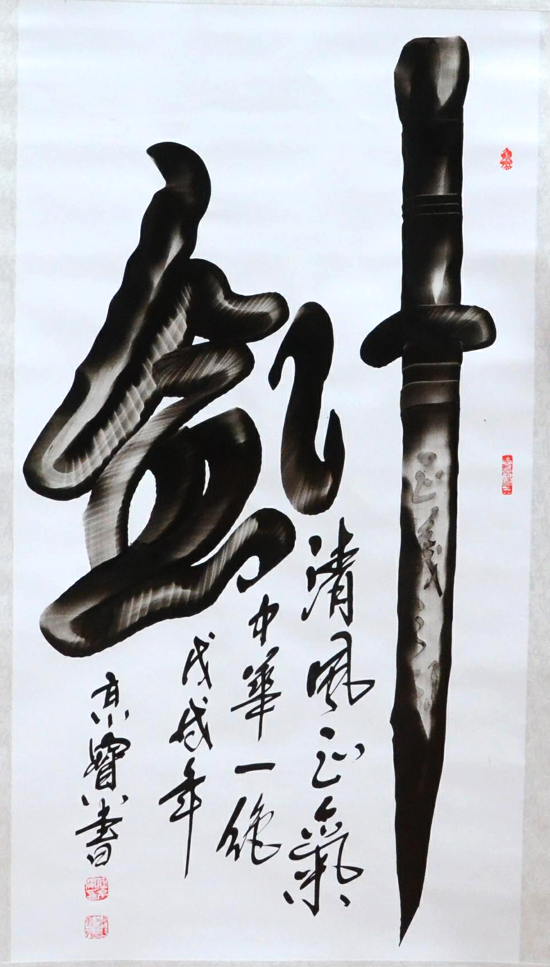 劍
正義之劍
清風正氣
中華一絕
戊戌年
京寶書